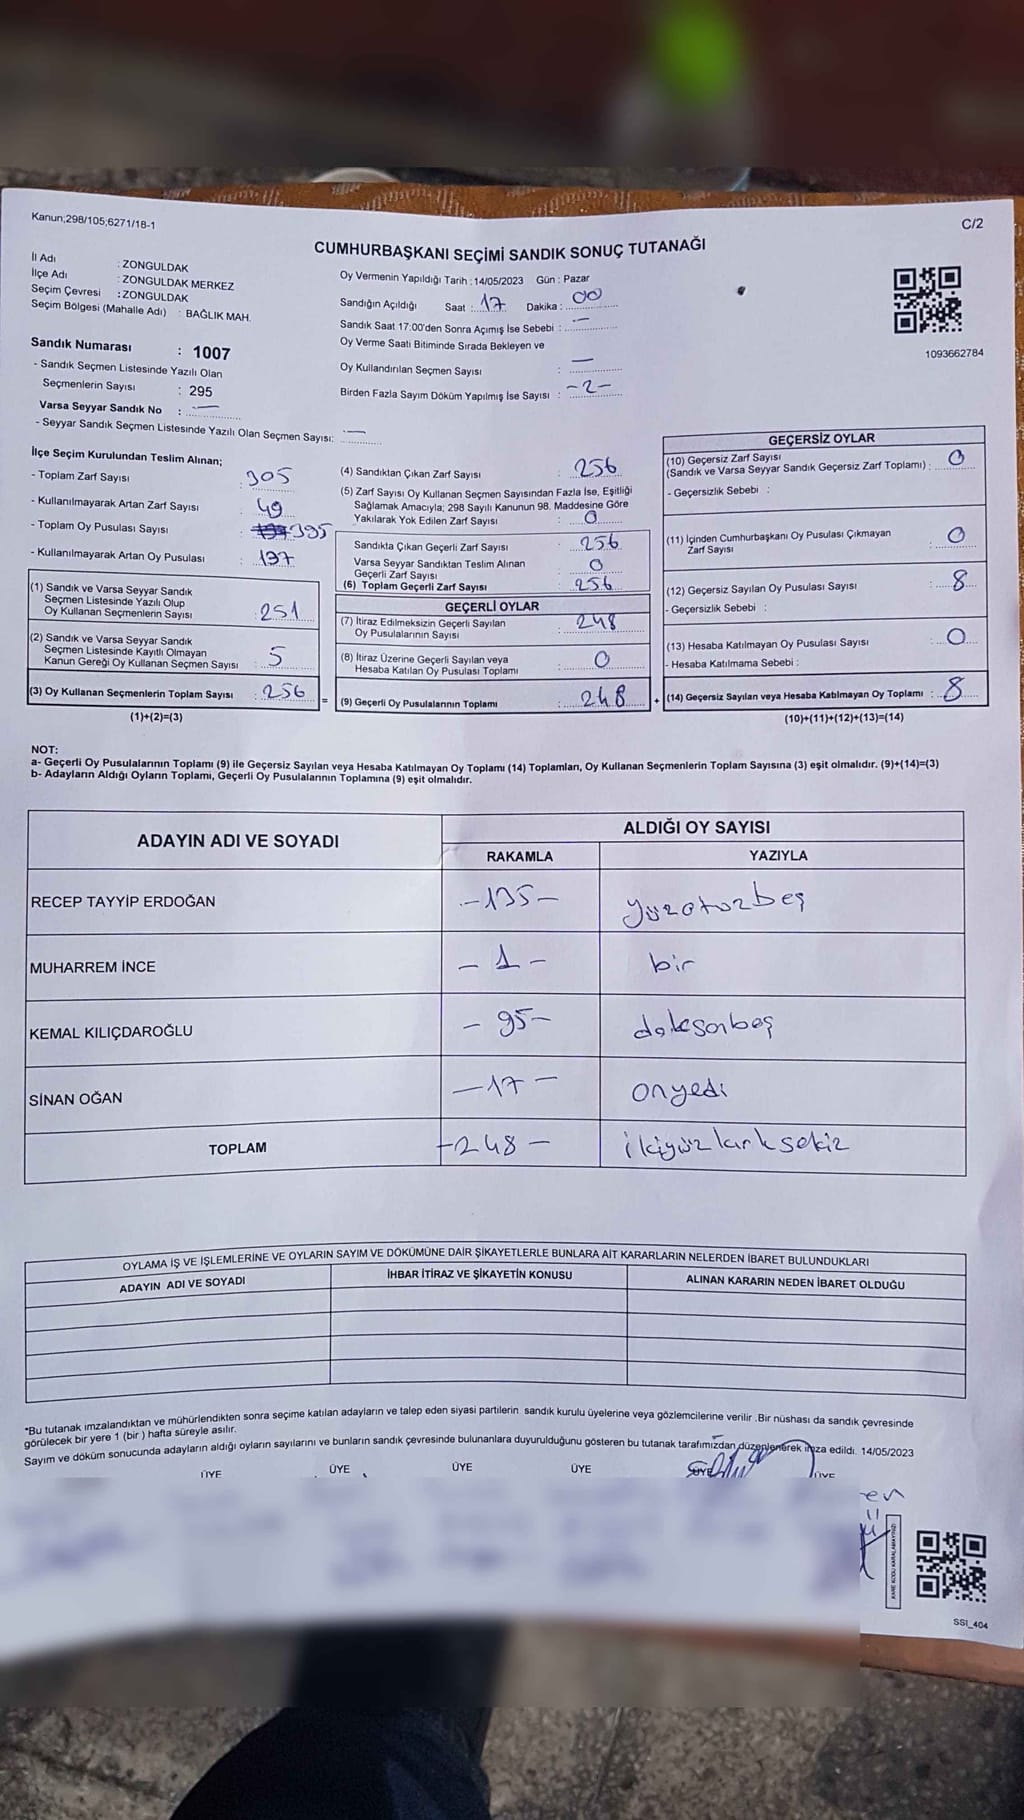 Kanun;298/105;6271/18-1
C/2
CUMHURBAŞKANI SEÇİMİ SANDIK SONUÇ TUTANAĞI
İl Adı : ZONGULDAK
İlçe Adı : ZONGULDAK MERKEZ
Seçim Çevresi : ZONGULDAK
Seçim Bölgesi (Mahalle Adı) : BAĞLIK MAH.
Sandık Numarası : 1007
- Sandık Seçmen Listesinde Yazılı Olan
Seçmenlerin Sayısı : 295
Varsa Seyyar Sandık No : —
- Seyyar Sandık Seçmen Listesinde Yazılı Olan Seçmen Sayısı: —
Oy Vermenin Yapıldığı Tarih : 14/05/2023 Gün : Pazar
Sandığın Açıldığı Saat : 17 Dakika : 00
Sandık Saat 17:00'den Sonra Açımış İse Sebebi : —
Oy Verme Saati Bitiminde Sırada Bekleyen ve
Oy Kullandırılan Seçmen Sayısı : —
Birden Fazla Sayım Döküm Yapılmış İse Sayısı : -2-
1093662784
İlçe Seçim Kurulundan Teslim Alınan;
- Toplam Zarf Sayısı : 305
- Kullanılmayarak Artan Zarf Sayısı : 49
- Toplam Oy Pusulası Sayısı : 395
- Kullanılmayarak Artan Oy Pusulası : 137
(1) Sandık ve Varsa Seyyar Sandık
Seçmen Listesinde Yazılı Olup
Oy Kullanan Seçmenlerin Sayısı : 251
(2) Sandık ve Varsa Seyyar Sandık
Seçmen Listesinde Kayıtlı Olmayan
Kanun Gereği Oy Kullanan Seçmen Sayısı : 5
(3) Oy Kullanan Seçmenlerin Toplam Sayısı : 256 =
(1)+(2)=(3)
(4) Sandıktan Çıkan Zarf Sayısı : 256
(5) Zarf Sayısı Oy Kullanan Seçmen Sayısından Fazla İse, Eşitliği
Sağlamak Amacıyla; 298 Sayılı Kanunun 98. Maddesine Göre
Yakılarak Yok Edilen Zarf Sayısı : 0
Sandıkta Çıkan Geçerli Zarf Sayısı : 256
Varsa Seyyar Sandıktan Teslim Alınan
Geçerli Zarf Sayısı : 0
(6) Toplam Geçerli Zarf Sayısı : 256
GEÇERLİ OYLAR
(7) İtiraz Edilmeksizin Geçerli Sayılan
Oy Pusulalarının Sayısı : 248
(8) İtiraz Üzerine Geçerli Sayılan veya
Hesaba Katılan Oy Pusulası Toplamı : 0
(9) Geçerli Oy Pusulalarının Toplamı : 248 +
GEÇERSİZ OYLAR
(10) Geçersiz Zarf Sayısı
(Sandık ve Varsa Seyyar Sandık Geçersiz Zarf Toplamı) : 0
- Geçersizlik Sebebi :
(11) İçinden Cumhurbaşkanı Oy Pusulası Çıkmayan
Zarf Sayısı : 0
(12) Geçersiz Sayılan Oy Pusulası Sayısı : 8
- Geçersizlik Sebebi :
(13) Hesaba Katılmayan Oy Pusulası Sayısı : 0
- Hesaba Katılmama Sebebi :
(14) Geçersiz Sayılan veya Hesaba Katılmayan Oy Toplamı : 8
(10)+(11)+(12)+(13)=(14)
NOT:
a- Geçerli Oy Pusulalarının Toplamı (9) ile Geçersiz Sayılan veya Hesaba Katılmayan Oy Toplamı (14) Toplamları, Oy Kullanan Seçmenlerin Toplam Sayısına (3) eşit olmalıdır. (9)+(14)=(3)
b- Adayların Aldığı Oyların Toplamı, Geçerli Oy Pusulalarının Toplamına (9) eşit olmalıdır.
ADAYIN ADI VE SOYADI ALDIĞI OY SAYISI
RAKAMLA YAZIYLA
RECEP TAYYİP ERDOĞAN -135- yüzotuzbeş
MUHARREM İNCE -1- bir
KEMAL KILIÇDAROĞLU -95- doksanbeş
SİNAN OĞAN -17- onyedi
TOPLAM -248- ikiyüzkırksekiz
OYLAMA İŞ VE İŞLEMLERİNE VE OYLARIN SAYIM VE DÖKÜMÜNE DAİR ŞİKAYETLERLE BUNLARA AİT KARARLARIN NELERDEN İBARET BULUNDUKLARI
ADAYIN ADI VE SOYADI İHBAR İTİRAZ VE ŞİKAYETİN KONUSU ALINAN KARARIN NEDEN İBARET OLDUĞU
*Bu tutanak imzalandıktan ve mühürlendikten sonra seçime katılan adayların ve talep eden siyasi partilerin sandık kurulu üyelerine veya gözlemcilerine verilir .Bir nüshası da sandık çevresinde
görülecek bir yere 1 (bir ) hafta süreyle asılır.
Sayım ve döküm sonucunda adayların aldığı oyların sayılarını ve bunların sandık çevresinde bulunanlara duyurulduğunu gösteren bu tutanak tarafımızdan düzenlenerek imza edildi. 14/05/2023
ÜYE ÜYE ÜYE ÜYE ÜYE ÜYE
KARE KODU KARALAMAYINIZ!
SSI_404